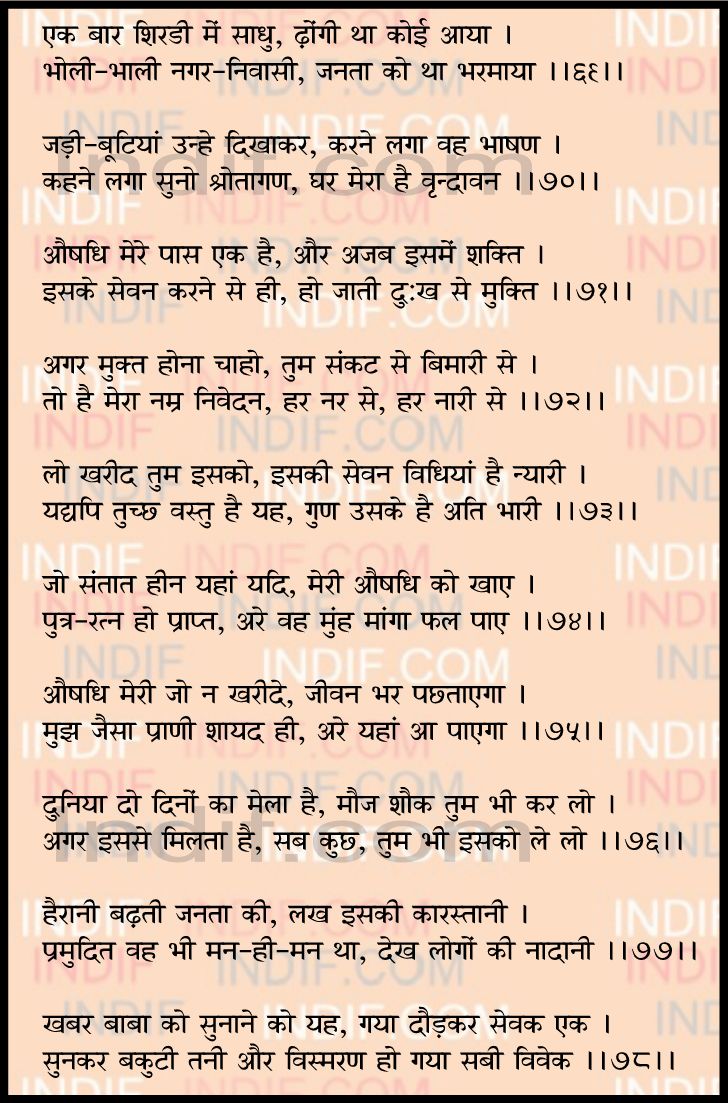 एक बार शिरडी में साधु, ढ़ोंगी था कोई आया ।
भोली-भाली नगर-निवासी, जनता को था भरमाया ।।६९।।
जड़ी-बूटियां उन्हे दिखाकर, करने लगा वह भाषण ।
कहने लगा सुनो श्रोतागण, घर मेरा है वृन्दावन ।।७०।।
औषधि मेरे पास एक है, और अजब इसमें शक्ति ।
इसके सेवन करने से ही, हो जाती दुःख से मुक्ति ।।७१।।
अगर मुक्त होना चाहो, तुम संकट से बिमारी से ।
तो है मेरा नम्र निवेदन, हर नर से, हर नारी से ।।७२।।
लो खरीद तुम इसको, इसकी सेवन विधियां है न्यारी ।
यद्यपि तुच्छ वस्तु है यह, गुण उसके है अति भारी ।।७३।।
जो संतात हीन यहां यदि, मेरी औषधि को खाए ।
पुत्र-रत्न हो प्राप्त, अरे वह मुंह मांगा फल पाए ।।७४।।
औषधि मेरी जो न खरीदे, जीवन भर पछताएगा ।
मुझ जैसा प्राणी शायद ही, अरे यहां आ पाएगा ।।७५।।
दुनिया दो दिनों का मेला है, मौज शौक तुम भी कर लो ।
अगर इससे मिलता है, सब कुछ, तुम भी इसको ले लो ।।७६।।
हैरानी बढ़ती जनता की, लख इसकी कारस्तानी ।
प्रमुदित वह भी मन-ही-मन था, देख लोगों की नादानी ।।७७।।
खबर बाबा को सुनाने को यह, गया दौड़कर सेवक एक ।
सुनकर बकुटी तनी और विस्मरण हो गया सबी विवेक ।।७८।।